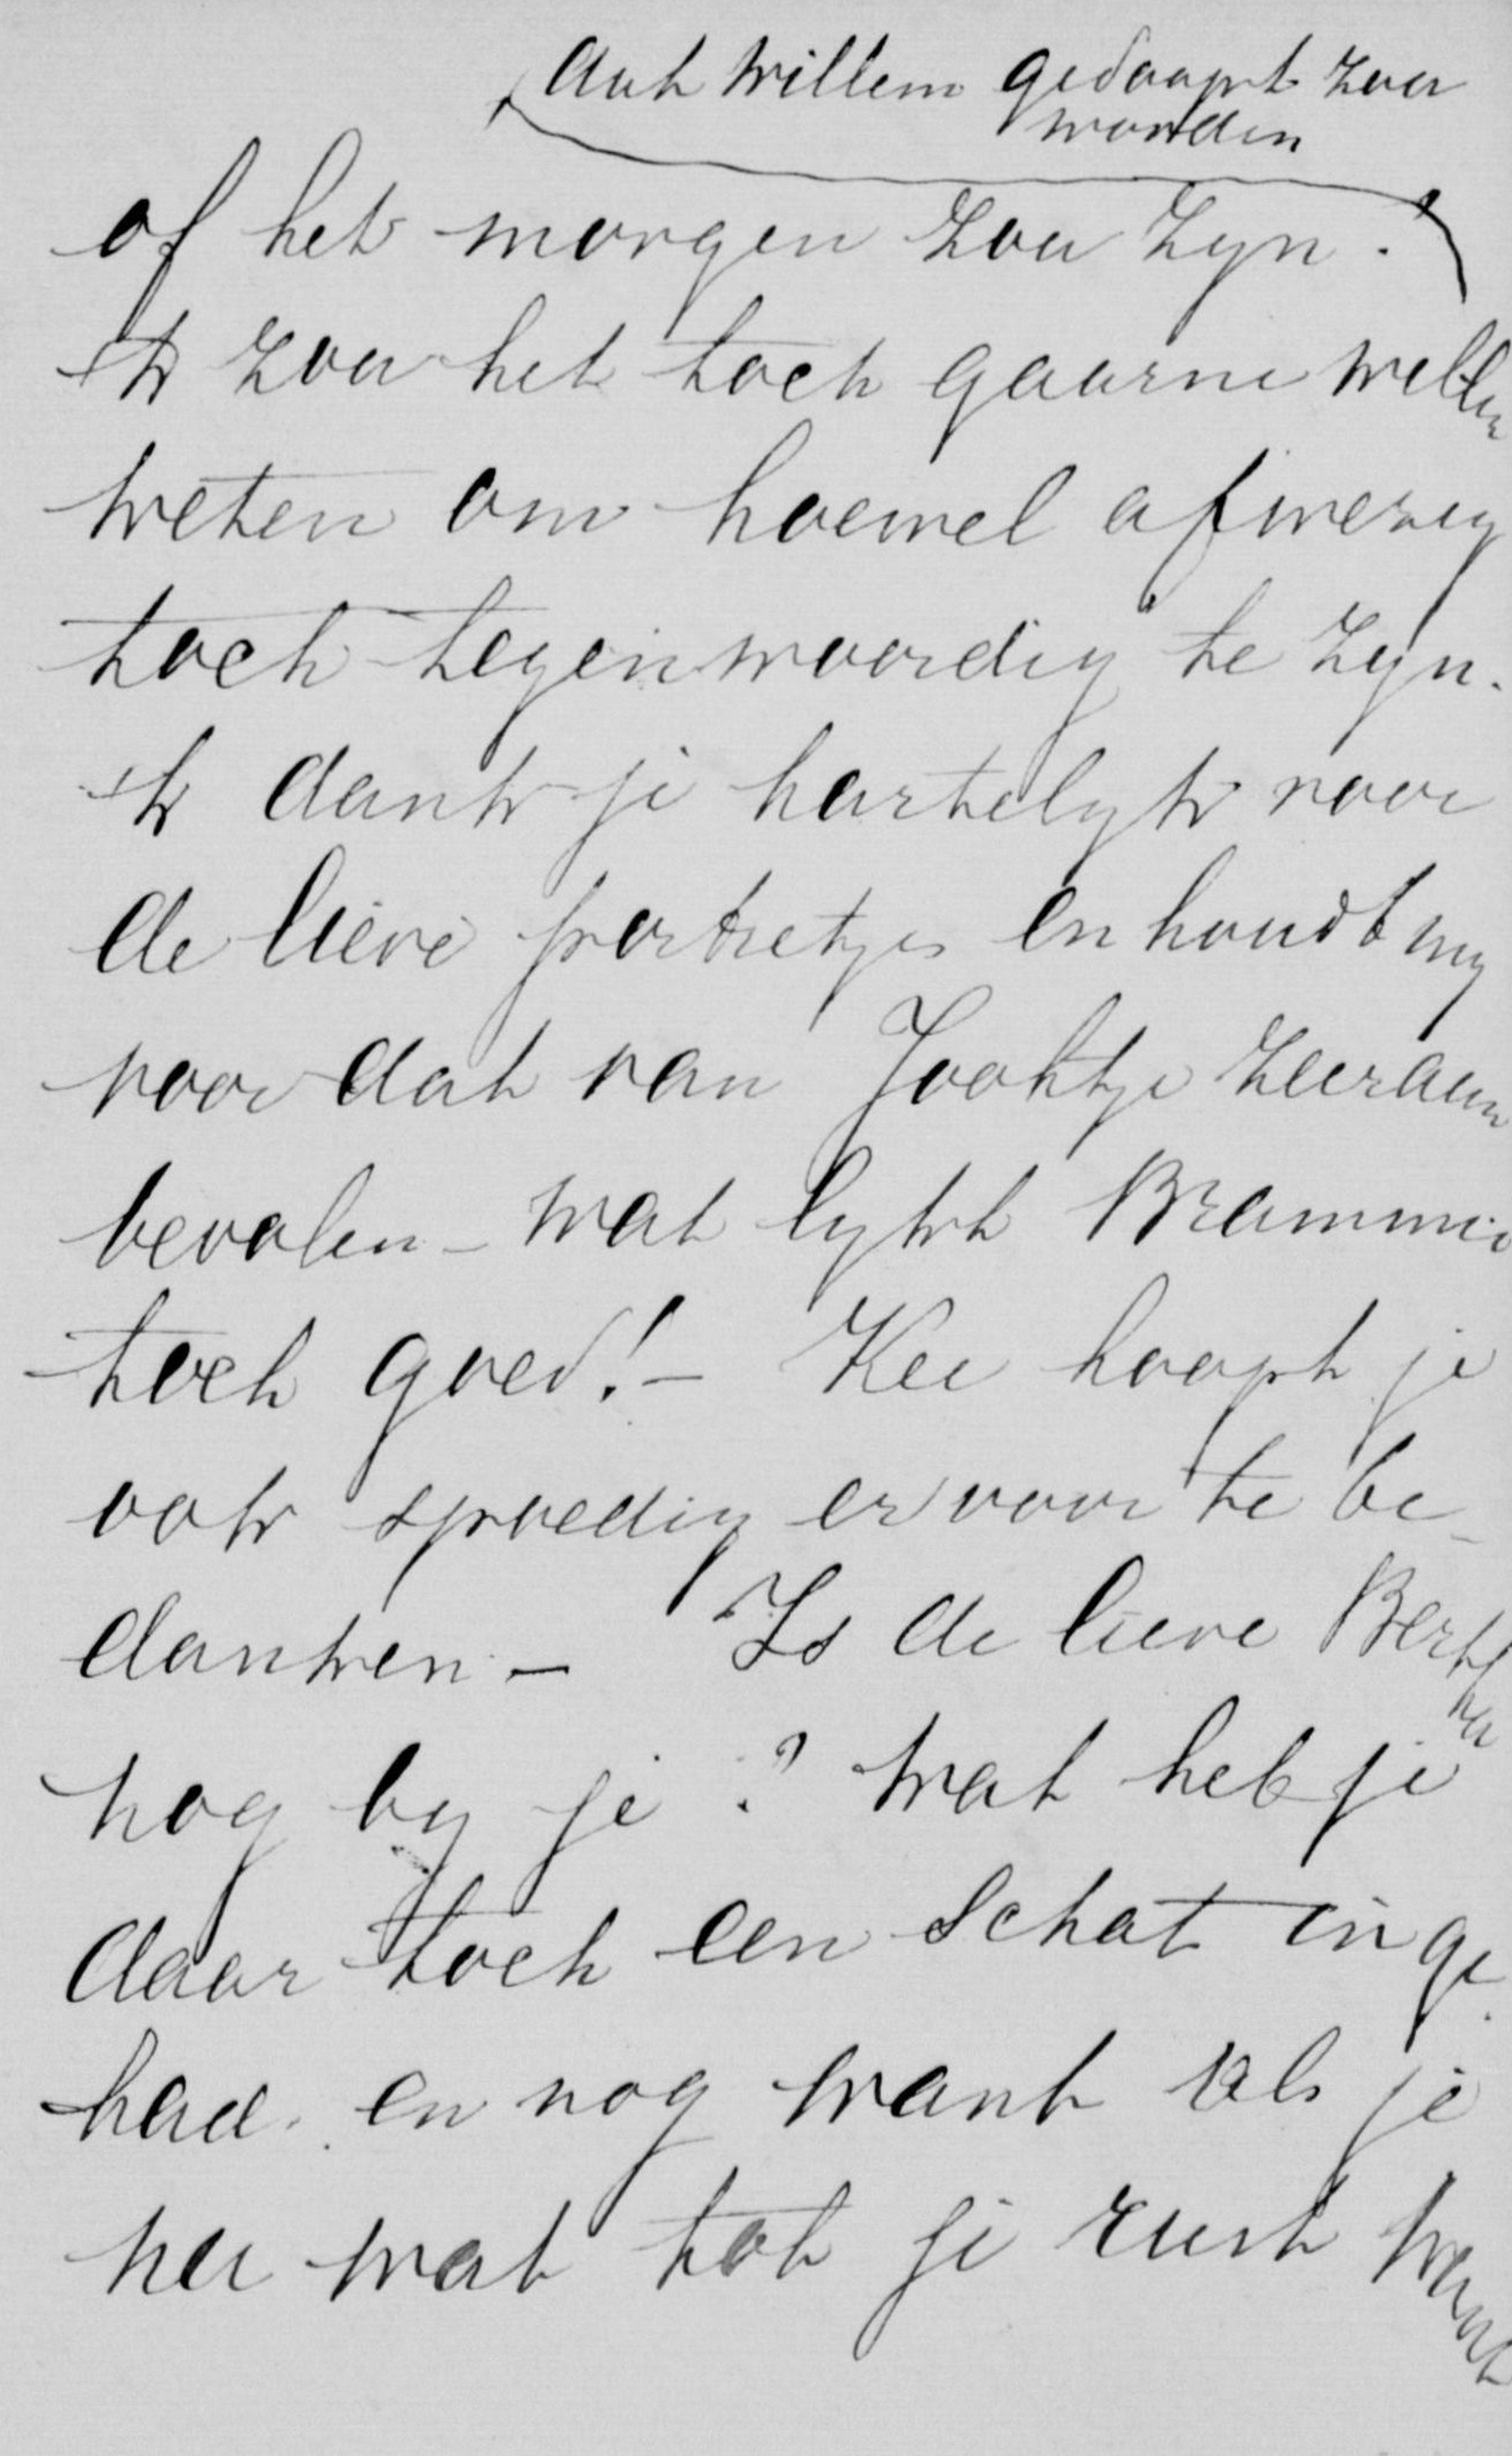 dat Willem gedoopt zou
worden
of het morgen zou zyn.
Ik zou het toch gaarne willen
weten om hoewel afwezig
toch tegenwoordig te zyn.
Ik dank je hartelyk voor
de lieve portretjes en houdt my
voor dat van Jooktje zeer aan
bevolen – wat lykt Brammie
toch goed! – Kee hoopt je
ook spoedig ervoor te be-
danken – Is de lieve Bertha
nog by je? Wat heb je
daar toch een schat in ge
had en nog want als je
nu wat tot je rust want